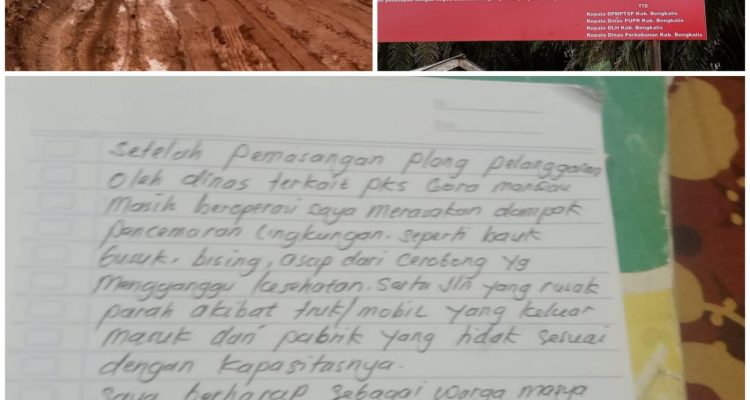 TTD
Kepala DPMPTSP Kab. Bengkalis
Kepala Dinas PUPR Kab. Bengkalis
Kepala DLH Kab. Bengkalis
Kepala Dinas Perkebunan Kab. Bengkalis
Setelah pemasangan plang pelanggaran
Oleh dinas terkait pks Gora mandau
Masih beroperasi saya merasakan dampak
pencemaran lingkungan. seperti bauk
busuk, bising, asap dari cerobong yg
Mengganggu kesehatan. Serta jln yang rusak
parah akibat truk/mobil yang keluar
masuk dari pabrik yang tidak sesuai
dengan kapasitasnya.
Saya berharap sebagai warga masya